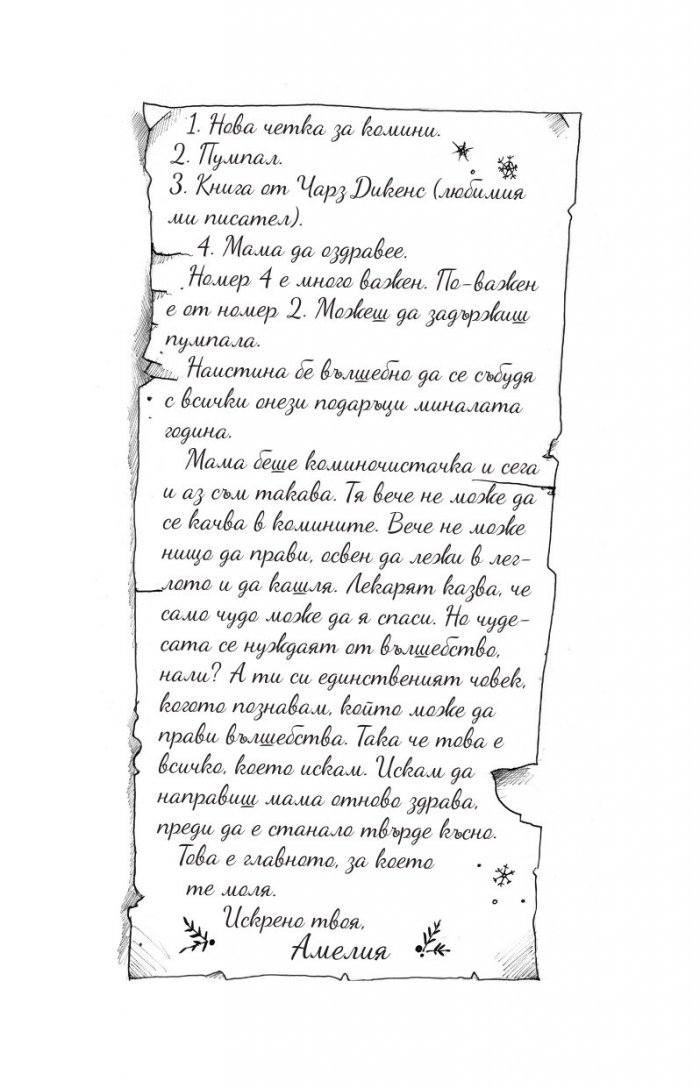 1. Нова четка за комини.
2. Пумпал.
3. Книга от Чарз Дикенс (любимия
ми писател).
4. Мама да оздравее.
Номер 4 е много важен. По-важен
е от номер 2. Можеш да задържиш
пумпала.
Наистина бе вълшебно да се събудя
с всички онези подаръци миналата
година.
Мама беше коминочистачка и сега
и аз съм такава. Тя вече не може да
се качва в комините. Вече не може
нищо да прави, освен да лежи в лег-
лото и да кашля. Лекарят казва, че
само чудо може да я спаси. Но чуде-
сата се нуждаят от вълшебство,
нали? А ти си единственият човек,
когото познавам, който може да
прави вълшебства. Така че това е
всичко, което искам. Искам да
направиш мама отново здрава,
преди да е станало твърде късно.
Това е главното, за което
те моля.
Искрено твоя,
Амелия